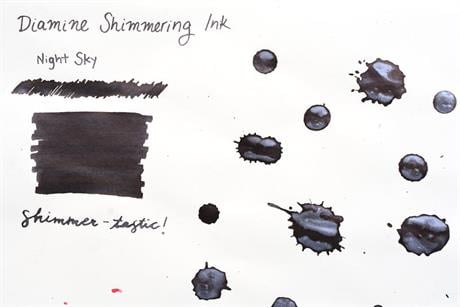 Diamine Shimmering Ink
Night Sky
Shimmer-tastic!